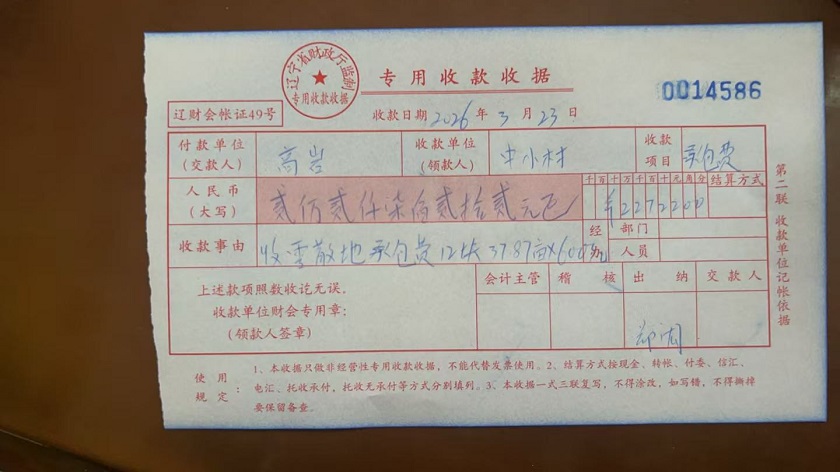 辽宁省财政厅监制
专用收款收据
专用收款收据
0014586
辽财会帐证49号
收款日期 2026 年 3 月 23 日
付款单位(交款人) 高岩 收款单位(领款人) 中小村 收款项目 承包费
人民币(大写) 贰万贰仟柒佰贰拾贰元 千百十万千百十元角分 ¥2272200 结算方式
收款事由 收零散地承包费12块37.87亩×600 经办 部门
人员
上述款项照数收讫无误。
收款单位财会专用章:
(领款人签章)
会计主管 稽核 出纳 交款人
第二联 收款单位记帐依据
使用规定:
1、本收据只做非经营性专用收款收据,不能代替发票使用。2、结算方式按现金、转帐、付委、信汇、
电汇、托收承付,托收无承付等方式分别填列。3、本收据一式三联复写,不得涂改,如写错,不得撕掉
要保留备查。